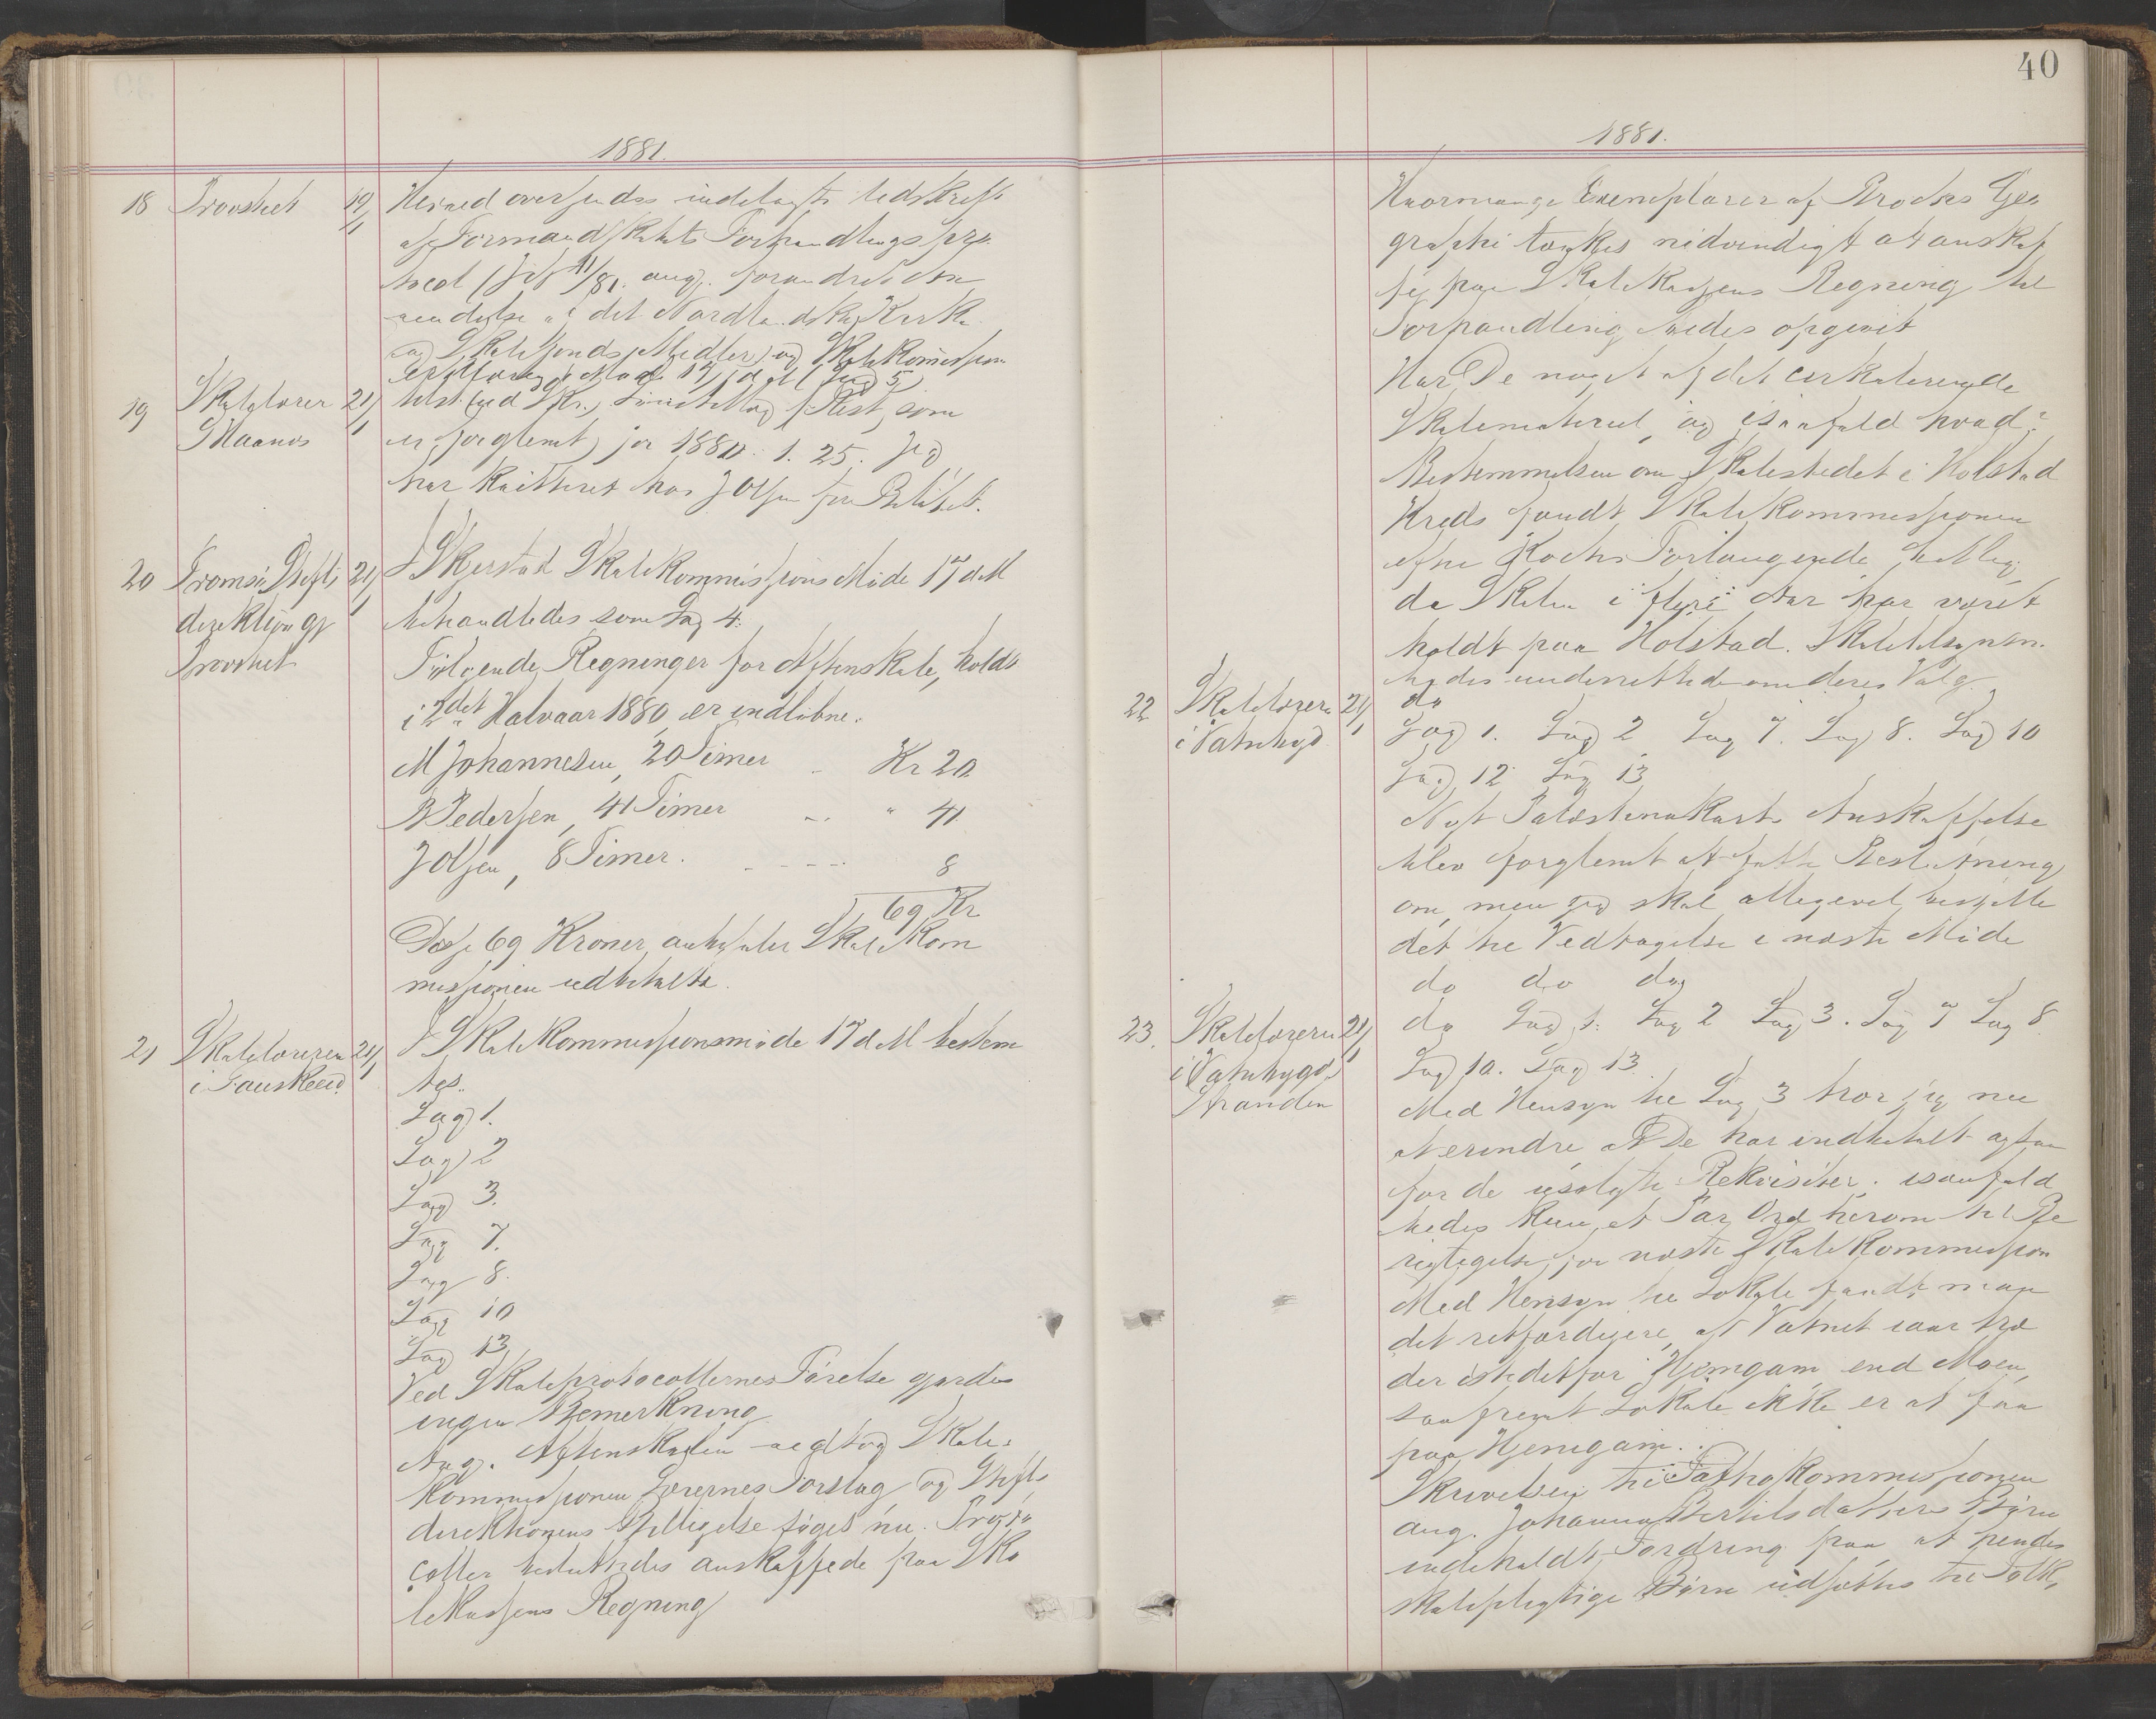 1881.
18 Provstiet 19/1 Herved oversendes indelagte Udskrift
af Formandskabets Forhandlingspro
tocol ang. forandret An
vendelse af det Nordlandske Kirke
og Skolefonds Midler og Skolekommission
Møde 17 (Sag 5)
19 Skolelærer 21/1 tilst. ved Skr. (Rest, som
Maanes er forglemt) for 1880: 1.25. Jeg
har kvitteret hos J Olsen for Beløbet.
20 Tromsø Stifts 21/1 I Skjerstad Skolekommissions Møde 17 d M
direktion gj behandledes som Sag 4:
Provstiet Følgende Regninger for Aftenskole, holdt
i 2det Halvaar 1880, er indløbne:
M Johannesen, 20 Timer Kr 20
B Pedersen, 41 Timer " 41
J Olsen, 8 Timer. 8
69 Kr
Disse 69 Kroner anbefaler Skolekom
missionen udbetalte.
21 Skolelæreren 21/1 I Skolekommissionsmøde 17 d M bestem
i Fauskeeid. tes:
Sag 1.
Sag 2
Sag 3.
Sag 7.
Sag 8.
Sag 10
Sag 13
Ved Skoleprotocollernes Førelse gjordes
ingen Bemerkning
Ang. Aftenskolen vedtog Skole
kommissionen Lærernes Forslag og Stifts
direktionens Billigelse søges nu. Proto
coller besluttedes anskaffede paa Sko
lekassens Regning
40
1881.
Hvormange Exemplarer af Brochs Geo
graphi tænkes nødvendigt at anskaf
fe paa Skolekassens Regning til
Forhandling bedes opgivet
Har De noget af det cirkulerende
Skolemateriel, og isaafald hvad?
Bestemmelsen om Skolestedet i Holstad
Kreds fandt Skolekommissionen
efter Kochs Forlangende
da Skolen i flere Aar har været
holdt paa Holstad. Skoletilsynsm.
bedes underrettede om deres Valg
22 Skolelæreren 21/1 do
i Vatnbygd Sag 1. Sag 2 Sag 7. Sag 8. Sag 10
Sag 12 Sag 13
Nyt Palæstinakarts Anskaffelse
blev forglemt at fatte Beslutning
om, men jeg skal allegevel bestille
det til Vedtagelse i næste Møde
do do do
23. Skolelæreren 21/1 do Sag 1. Sag 2 Sag 3. Sag 7 Sag 8
i Vatnbygd Sag 10. Sag 13
Stranden Med Hensyn til Sag 3 tror jeg nu
at erindre, at De har indbetalt ogsaa
for de usolgte Rekvisiter; isaafald
bedes kun et Par Ord herom til Be
rigtigelse for næste Skolekommission
Med Hensyn til Lokale fandt man
det retfærdigere, at Vatnet iaar træ
der istedetfor Hjemgam, end Moen,
saafremt Lokale ikke er at faa
paa Hjemgam.
Skrivelsen til Fattigkommissionen
ang. Johanna Bertilsdatters Børn
indeholdt Fordring paa at hendes
skolepligtige Børn udsættes til Folk,